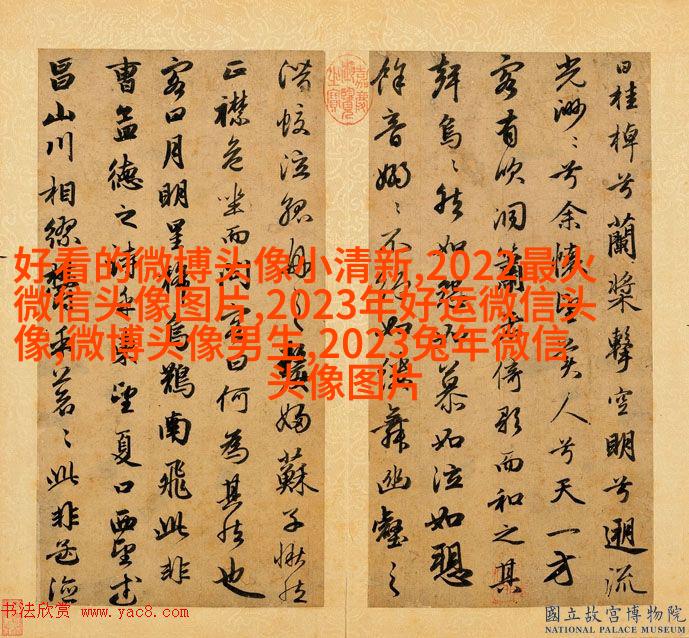 曰桂棹兮蘭槳擊空明兮遡流
光渺〻兮余懷望美人兮天一方
客有吹洞簫者倚歌而和之其
聲烏〻然如怨如慕如泣如愬
餘音嫋〻不絕如縷舞幽壑之
潛蛟泣孤舟之嫠婦蘇子愀然
正襟危坐而問客曰何為其然也
客曰月明星稀烏鵲南飛此非
曹孟德之詩乎東望夏口西望武
昌山川相繆鬱乎蒼〻此非孟德
好看的微博头像小清新,2022最火
微信头像图片,2023年好运微信头
像,微博头像男生,2023兔年微信
头像图片
书法欣赏 www.yac8.com
國立故宮博物院
NATIONAL PALACE MUSEUM